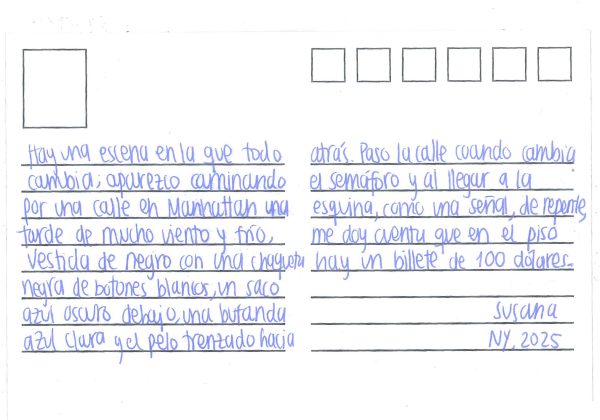 Hay una escena en la que todo
cambia; aparezco caminando
por una calle en Manhattan una
tarde de mucho viento y frío,
vestida de negro con una chaqueta
negra de botones blancos, un saco
azul oscuro debajo, una bufanda
azul clara y el pelo trenzado hacia
atrás. Paso la calle cuando cambia
el semáforo y al llegar a la
esquina, como una señal, de repente,
me doy cuenta que en el piso
hay un billete de 100 dólares.
Susana
NY, 2025